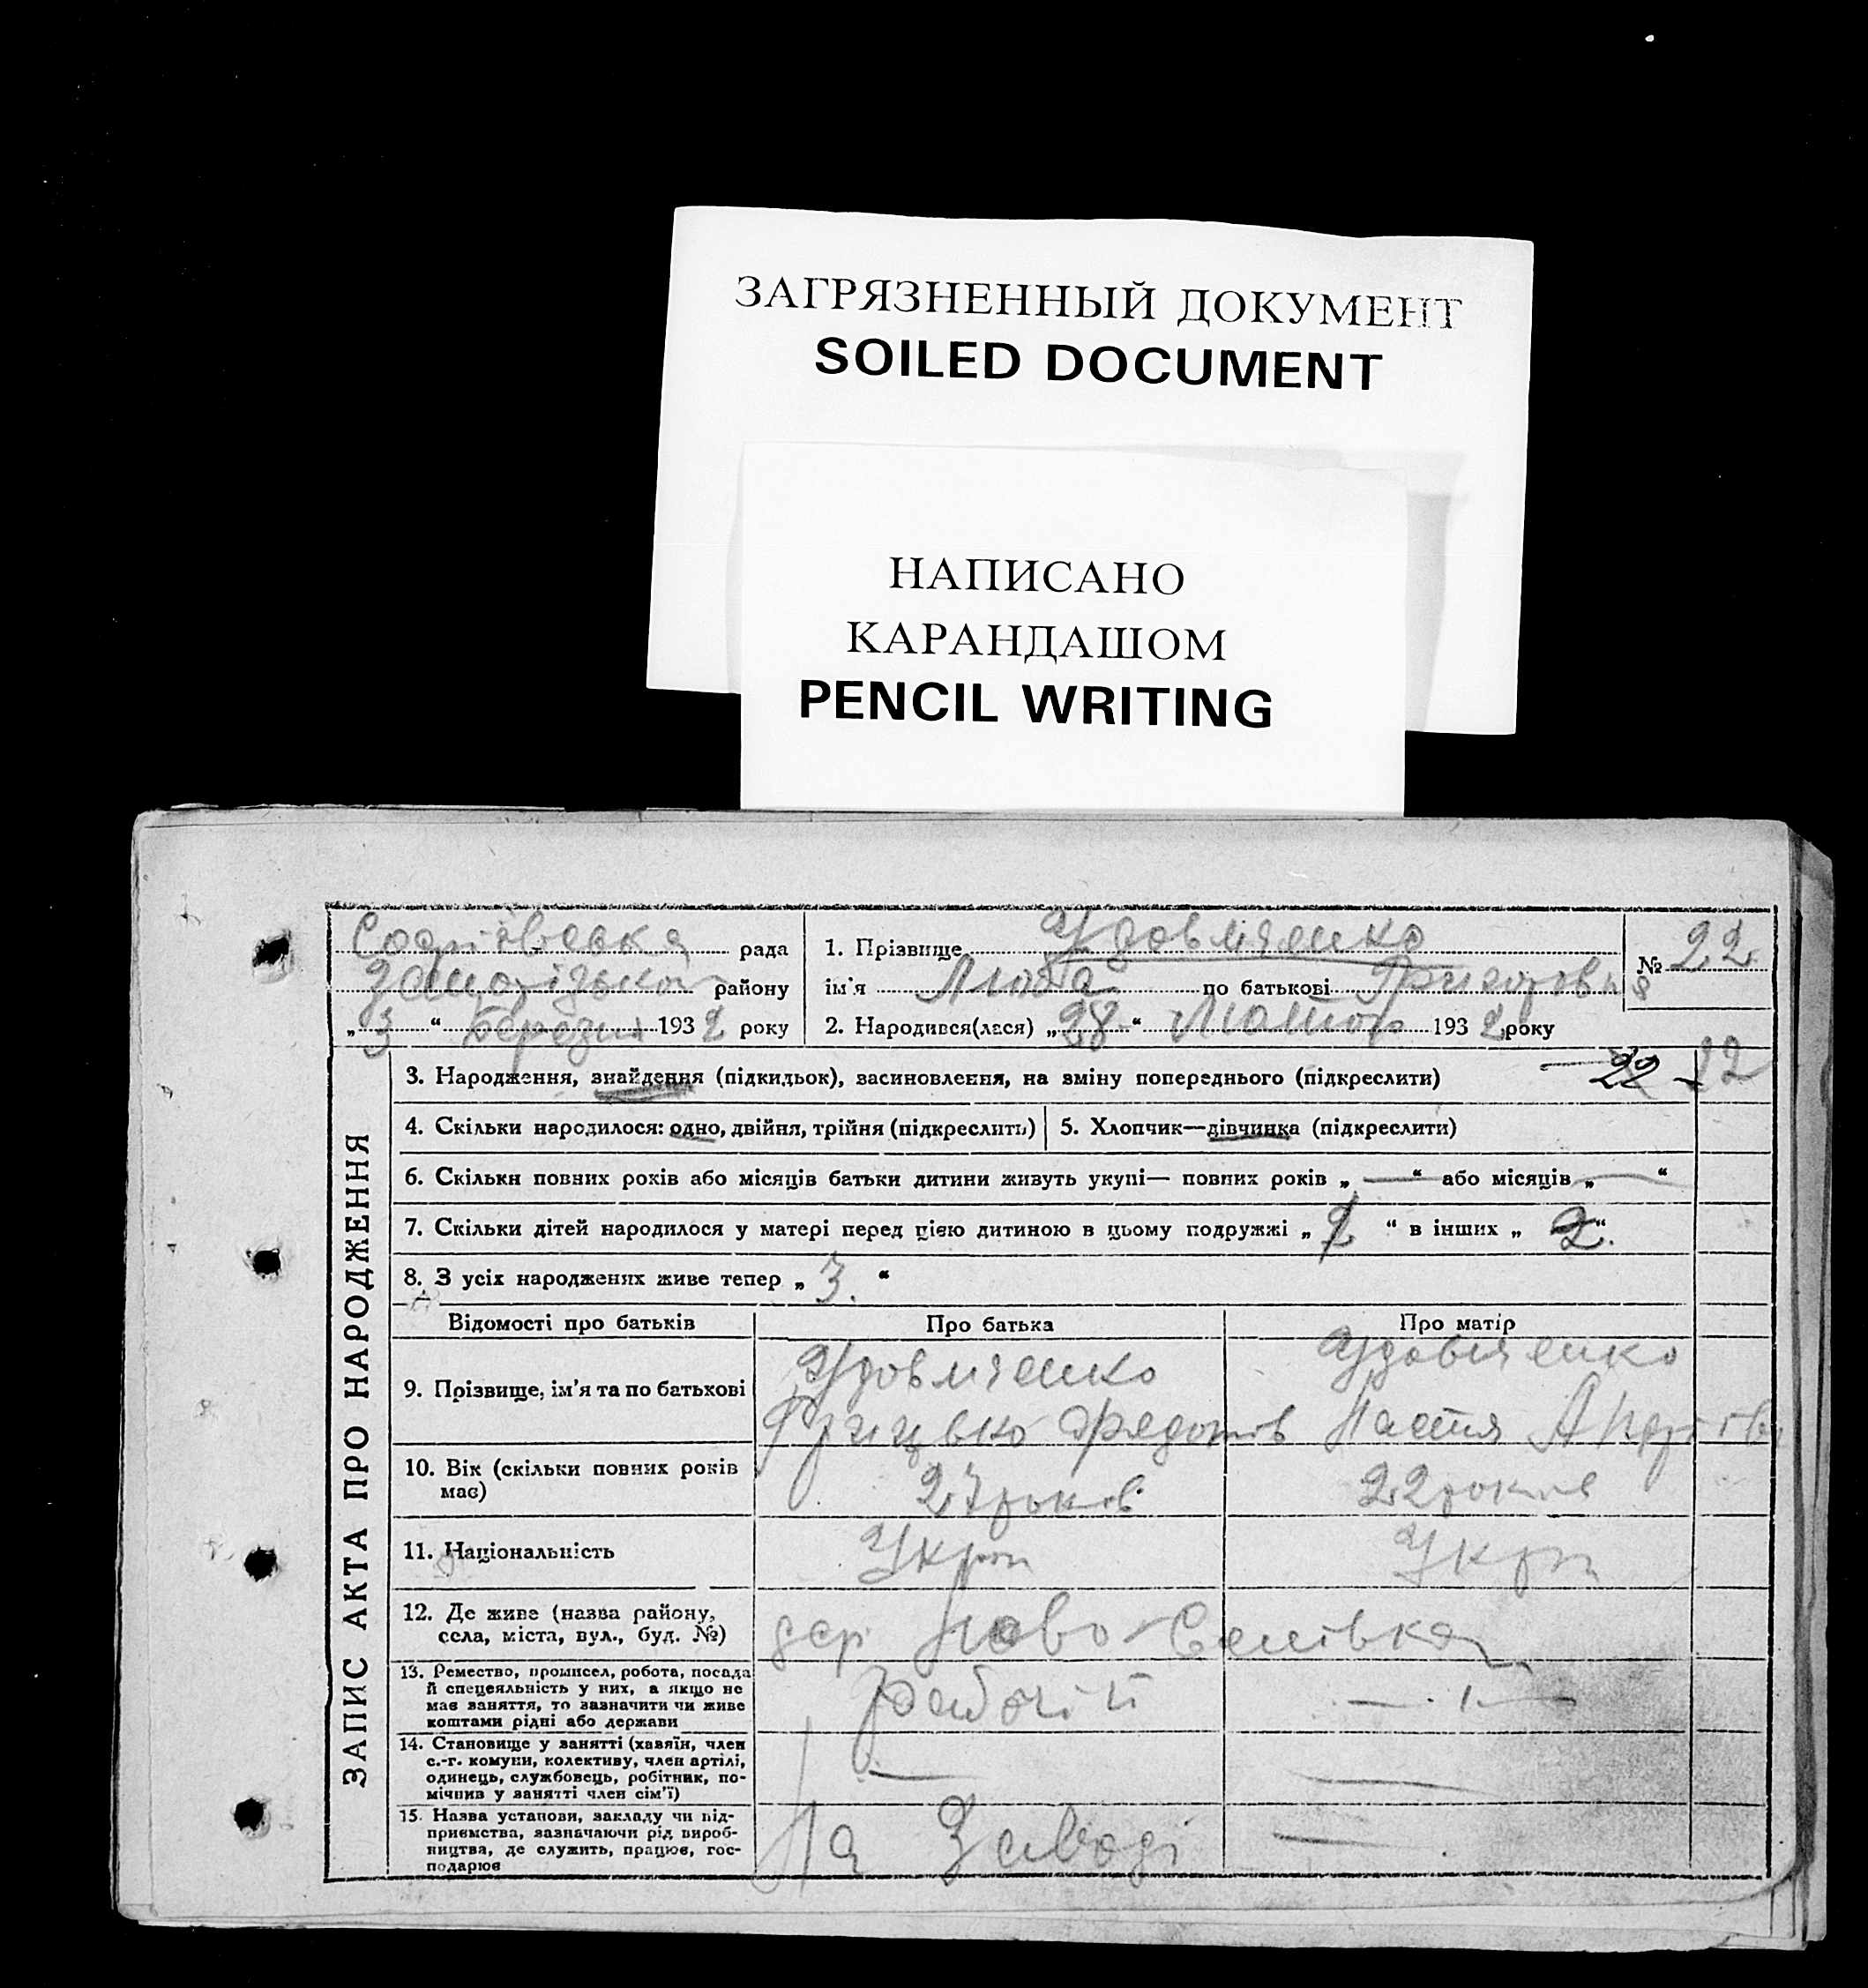 ЗАГРЯЗНЕННЫЙ ДОКУМЕНТ
SOILED DOCUMENT
НАПИСАНО
КАРАНДАШОМ
PENCIL WRITING
ЗАПИС АКТА ПРО НАРОДЖЕННЯ
Софіївська рада
району
„3“ Березня 1932 року
1. Прізвище
ім'я Люба по батькові Григоровна
2. Народився(лася) „28“ Лютого 1932 року
№ 22
3. Народження, знайдення (підкидьок), засиновлення, на зміну попереднього (підкреслити) 22 22
4. Скільки народилося: одно, двійня, трійня (підкреслить)
5. Хлопчик—дівчинка (підкреслити)
6. Скільки повних років або місяців батьки дитини живуть укупі— повних років „—“ або місяців „—“
7. Скільки дітей народилося у матері перед цією дитиною в цьому подружжі „2“ в інших „2“
8. З усіх народжених живе тепер „3.“
Відомості про батьків
Про батька
Про матір
9. Прізвище, ім'я та по батькові
Грицько
Настя
10. Вік (скільки повних років
має)
27 років
22 років
11. Національність
Укр
Укр
12. Де живе (назва району,
села, міста, вул., буд. №)
дер Ново-
13. Ремество, промисел, робота, посада
й спецеяльність у них, а якщо не
має заняття, то зазначити чи живе
коштами рідні або держави
Рабочій
14. Становище у занятті (хазяїн, член
с.-г. комуни, колективу, член артілі,
одинець, службовець, робітник, по-
мічнив у занятті член сім'ї)
15. Назва установи, закладу чи під-
приємства, зазначаючи рід вироб-
ництва, де служить, працює, гос-
подарює
На Заводі